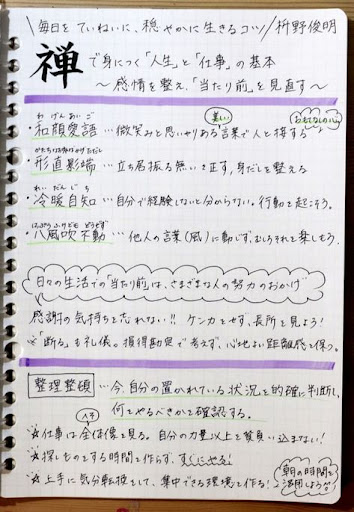 \毎日をていねいに、穏やかに生きるコツ//枡野俊明
禅で身につく「人生」と「仕事」の基本
～感情を整え、「当たり前」を見直す～
わ げん あい ご
美しい
おもてなしの心
・和顔愛語…微笑みと思いやりある言葉で人と接する
・形直影端…立ち居振る舞いを正す,身だしを整える
れい だん じ ち
・冷暖自知…自分で経験しないと分からない。行動を起こそう。
・八風吹不動…他人の言葉(風)に動じず,むしろそれを楽しもう。
日々の生活での「当たり前」は、さまざまな人の努力のおかげ
感謝の気持ちを忘れない!! ケンカをせず、長所を見よう!
※「断る」も礼儀。損得勘定で考えず、心地よい距離感を保つ。
整理整頓…今、自分の置かれている状況を的確に判断し、
何をやるべきかを確認する。
☆仕事は全体像を見る。自分の力量以上を背負い込まない!
☆探しものをする時間を作らず、すぐにやる!
☆上手に気分転換をして、集中できる環境を作る!
朝の時間を
活用しよう